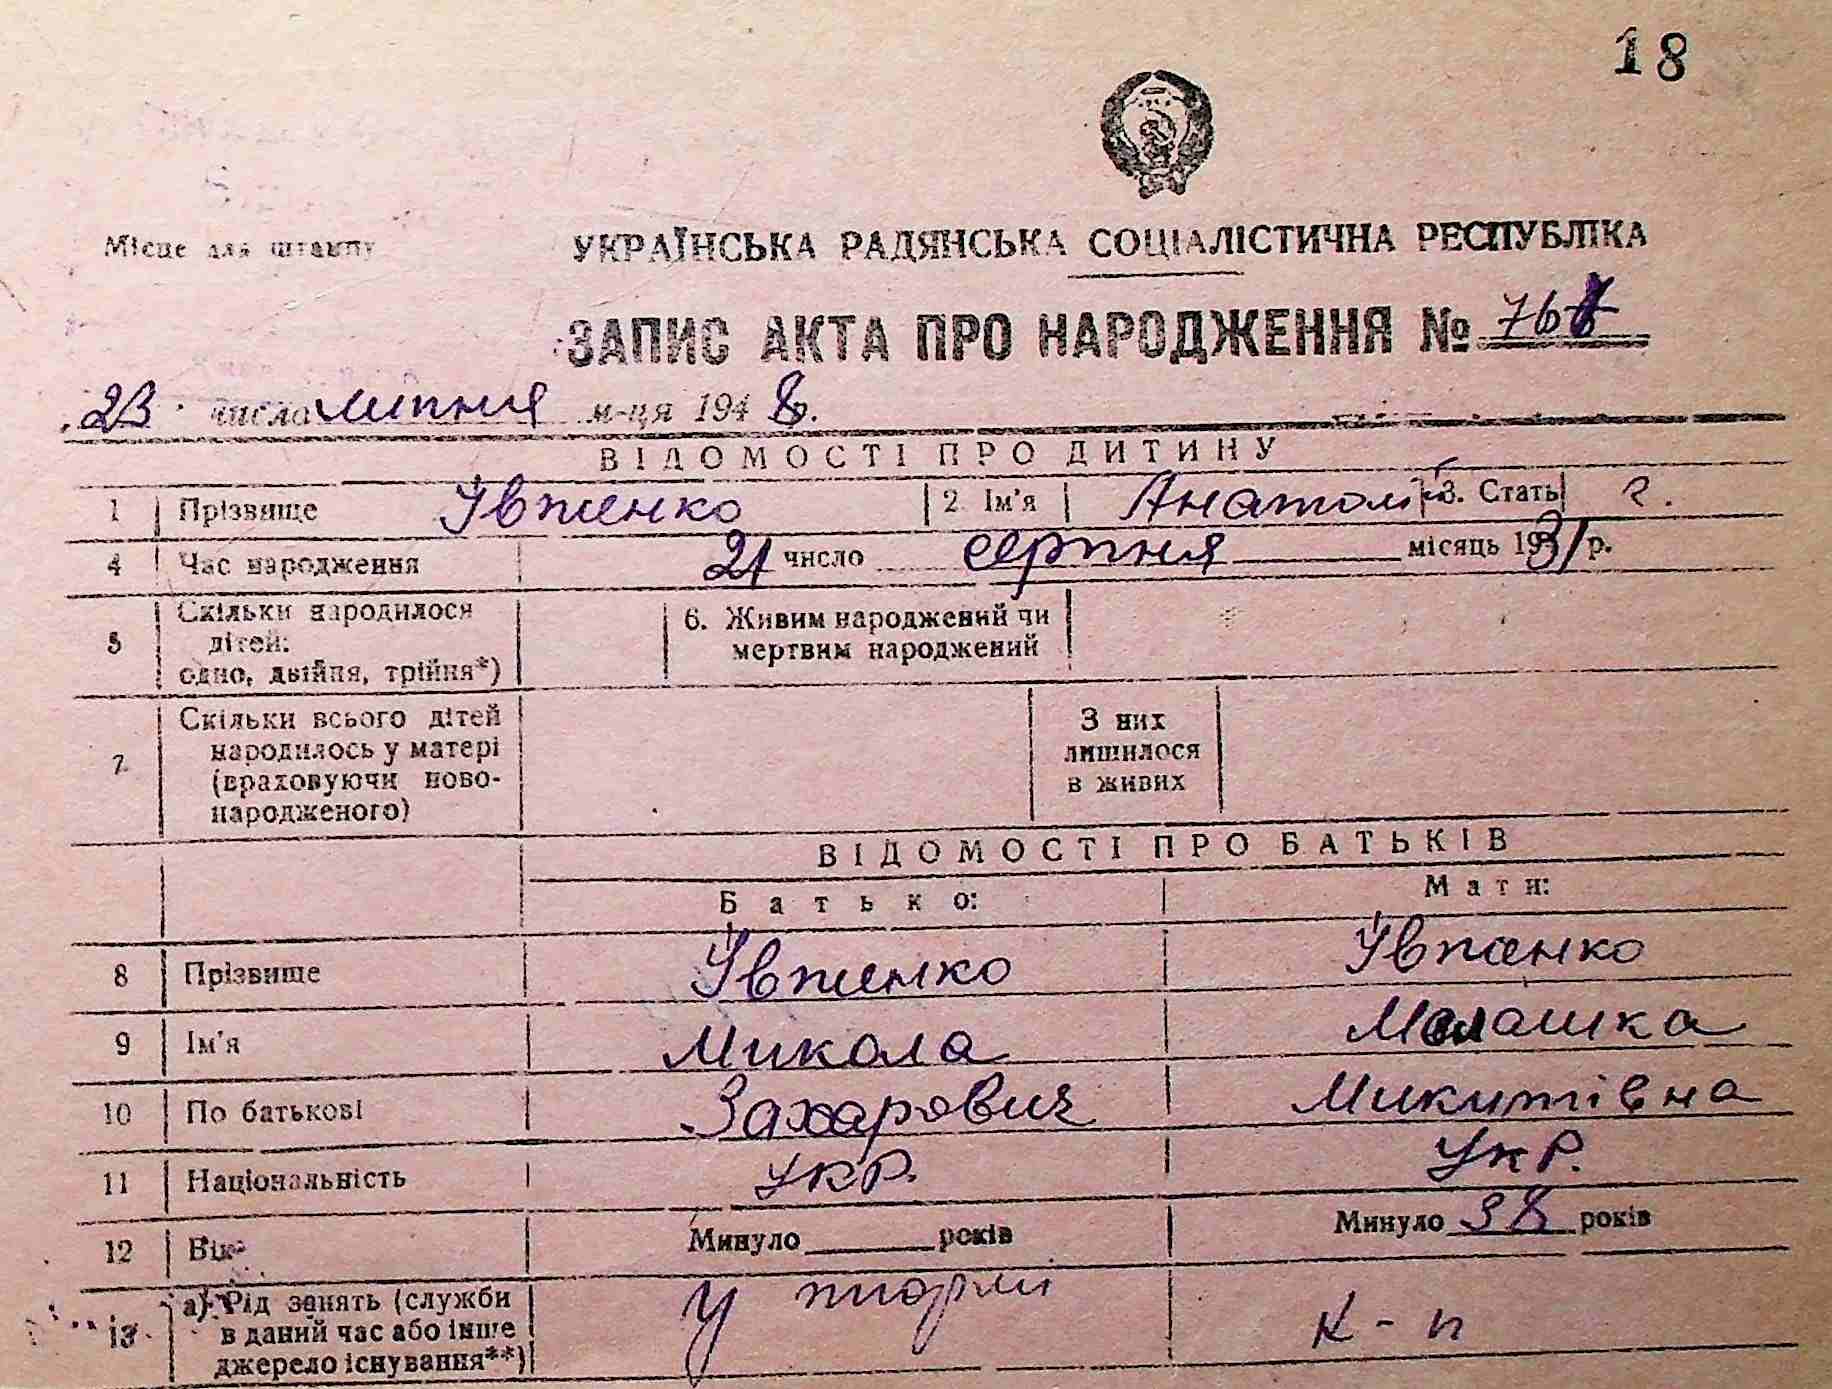 18
Місце для штампу
УКРАЇНСЬКА РАДЯНСЬКА СОЦІАЛІСТИЧНА РЕСПУБЛІКА
ЗАПИС АКТА ПРО НАРОДЖЕННЯ №
23 число липня м-ця 1948.
ВІДОМОСТІ ПРО ДИТИНУ
1 Прізвище Ївженко 2. Ім'я Анатолій 3. Стать ч.
4 Час народження 21 число серпня місяць 1931 р.
5 Скільки народилося дітей: одно, двійня, трійня*) 6. Живим народжений чи мертвим народжений
7 Скільки всього дітей народилось у матері (враховуючи новонародженого) З них лишилося в живих
ВІДОМОСТІ ПРО БАТЬКІВ
Батько: Мати:
8 Прізвище Ївженко Ївженко
9 Ім'я Микола Малашка
10 По батькові Захарович Микитівна
11 Національність укр. Укр.
12 Вік Минуло років Минуло 38 років
13 а) Рід занять (служби в даний час або інше джерело існування**) У тюрмі к-п